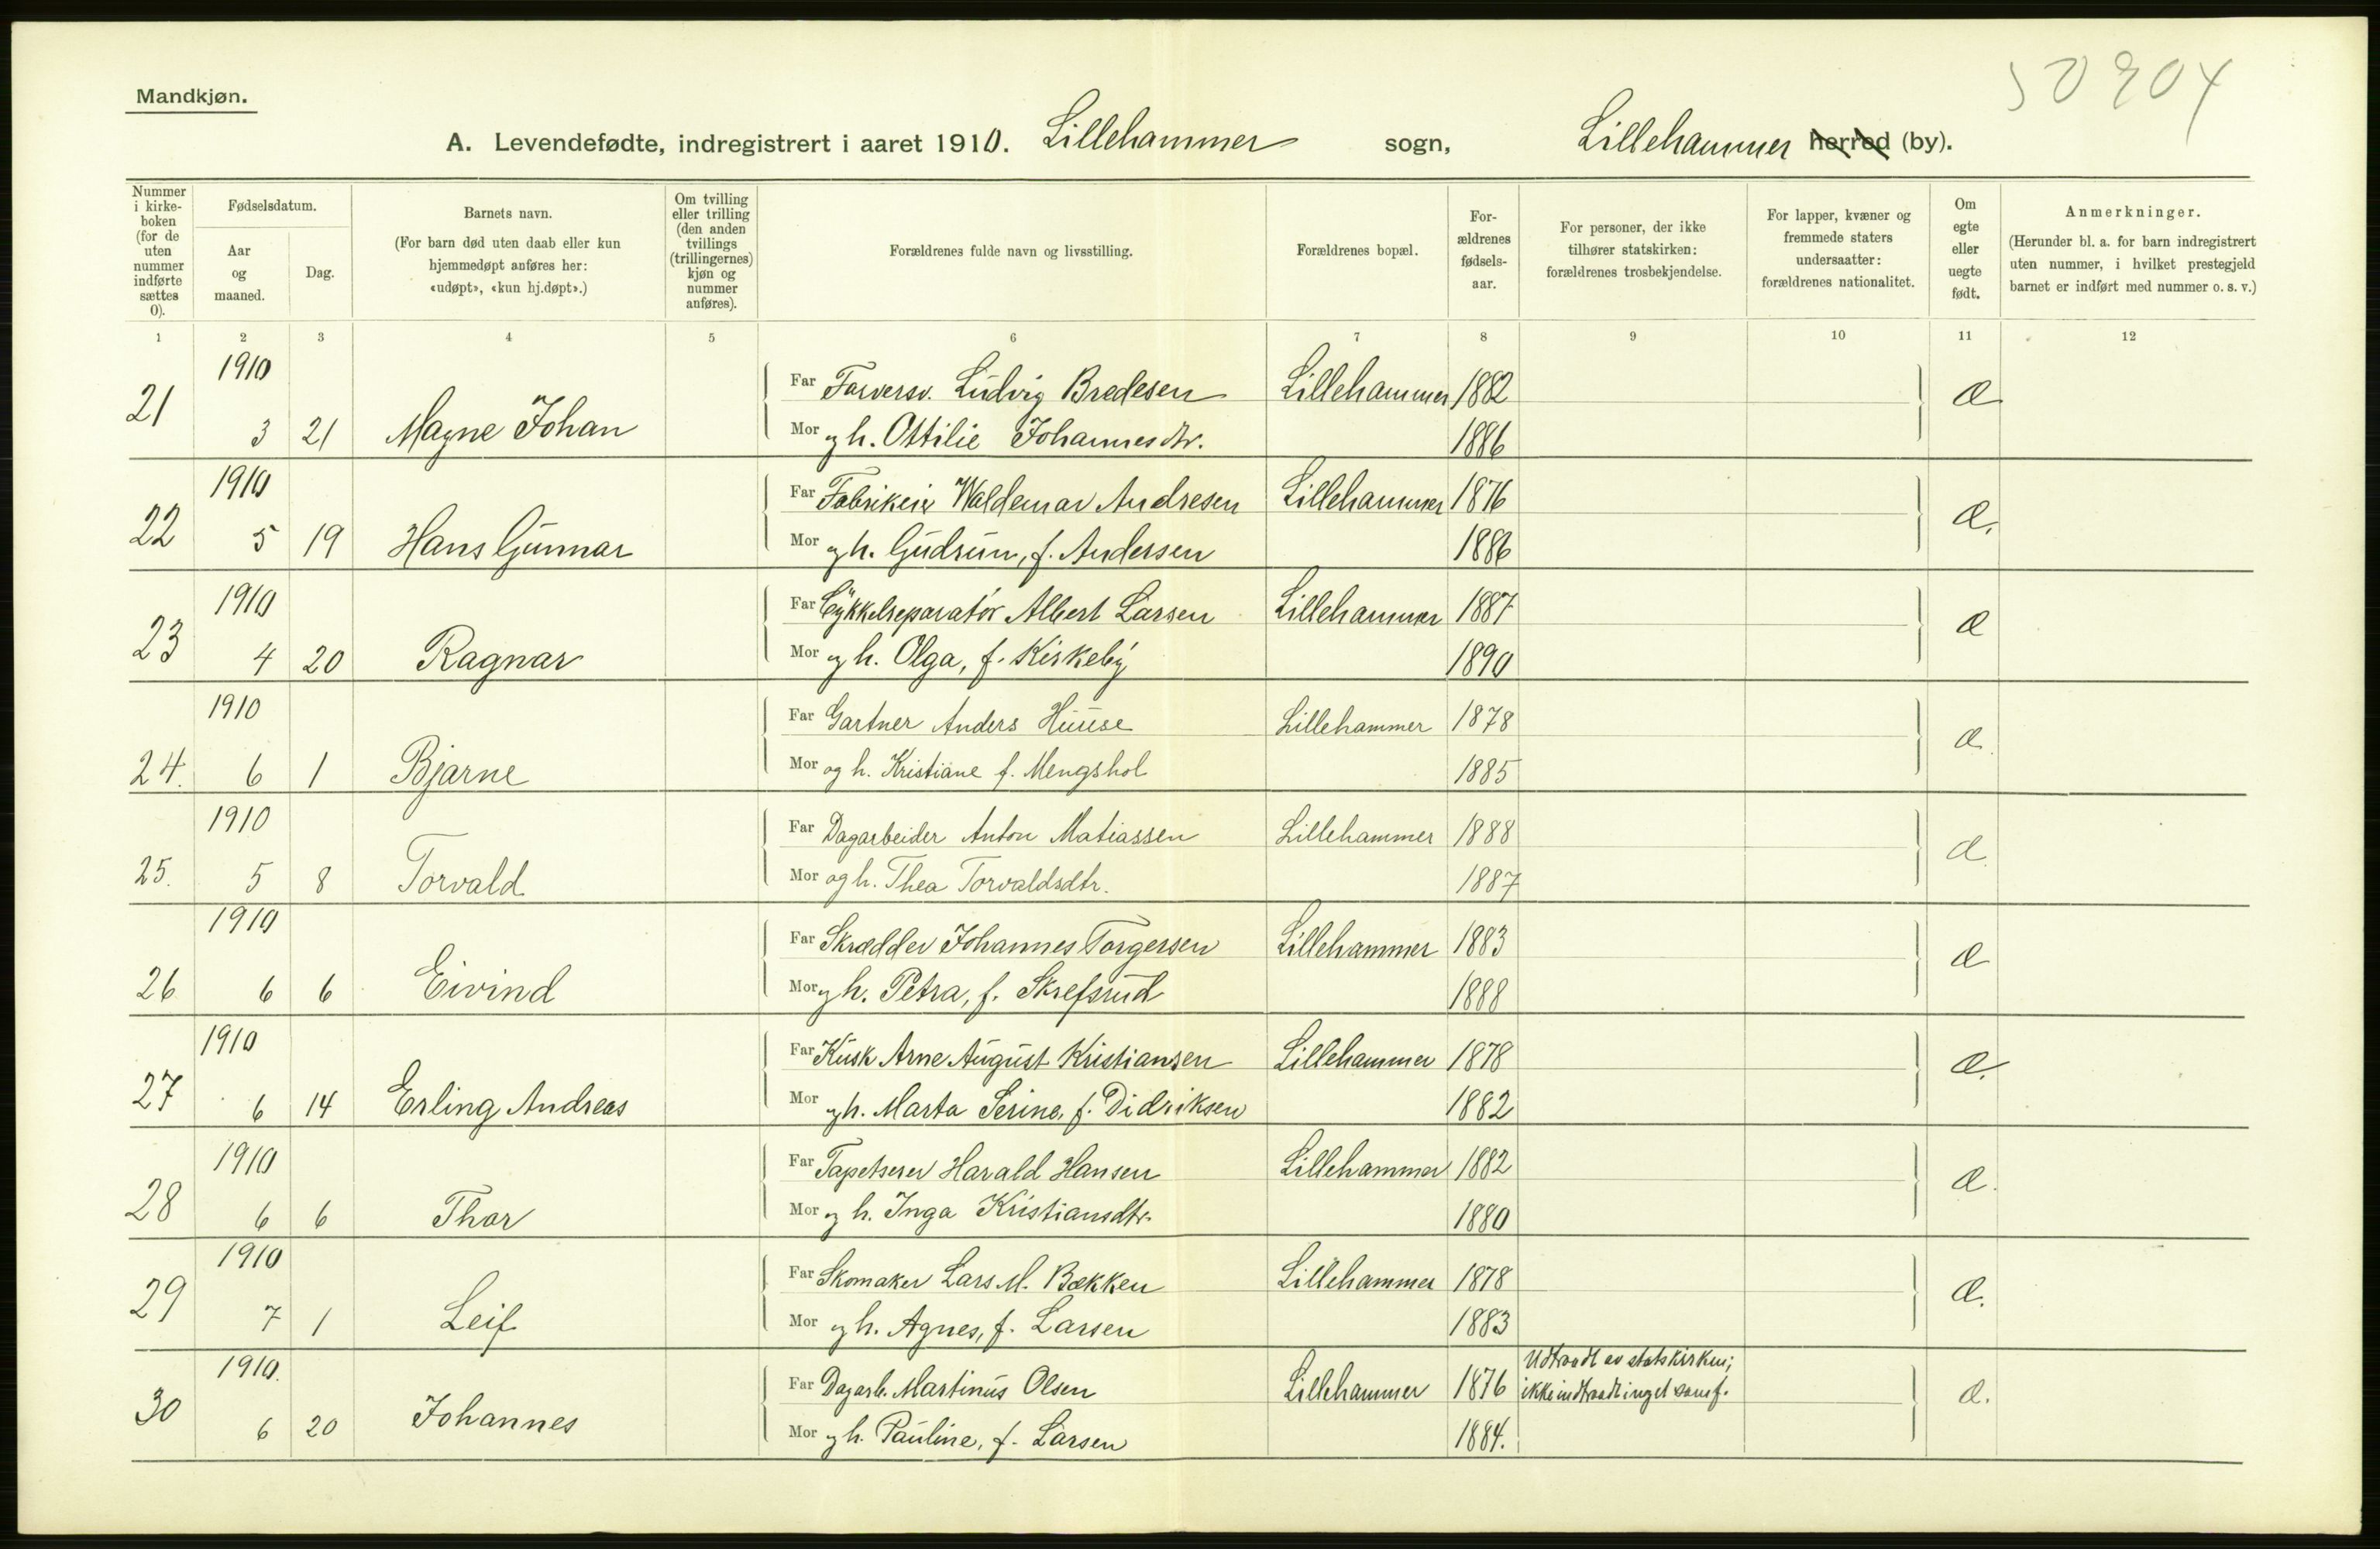 50904
Mandkjøn.
A. Levendefødte, indregistrert i aaret 1910. Lillehammer sogn, Lillehammer herred (by).
Nummer i kirke-boken (for de uten nummer indførte sættes 0).
Fødselsdatum.
Aar og maaned.
Dag.
Barnets navn.
(For barn død uten daab eller kun hjemmedøpt anføres her: «udøpt», «kun hj.døpt».)
Om tvilling eller trilling (den anden tvillings (trillingernes) kjøn og nummer anføres).
Forældrenes fulde navn og livsstilling.
Forældrenes bopæl.
For-ældrenes fødsels-aar.
For personer, der ikke tilhører statskirken: forældrenes trosbekjendelse.
For lapper, kvæner og fremmede staters undersaatter: forældrenes nationalitet.
Om egte eller uegte født.
Anmerkninger.
(Herunder bl. a. for barn indregistrert uten nummer, i hvilket prestegjeld barnet er indført med nummer o. s. v.)
1 2 3 4 5 6 7 8 9 10 11 12
1910
Far Farversv. Ludvig Bredesen Lillehammer 1882
21 3 21 Magne Johan Æ
Mor og h. Ottilie Johannesdtr. 1886
1910
Far Fabrikeier Waldemar Andresen Lillehammer 1876
22 5 19 Hans Gunnar Æ.
Mor og h. Gudrun, f. Andersen 1886
1910
Far Cykkelreparatør Albert Larsen Lillehammer 1887
23 4 20 Ragnar Æ
Mor og h. Olga, f. Kirkeby 1890
1910
Far Gartner Anders Huuse Lillehammer 1878
24. 6 1 Bjarne Æ.
Mor og h. Kristiane f. Mengshol 1885
1910
Far Dagarbeider Anton Matiassen Lillehammer 1888
25. 5 8 Torvald Æ.
Mor og h. Thea Torvaldsdtr. 1887
1910
Far Skrædder Johannes Torgersen Lillehammer 1883
26 6 6 Eivind Æ
Mor og h. Petra, f. Skrefsrud 1888
1910
Far Kusk Arne August Kristiansen Lillehammer 1878
27 6 14 Erling Andreas Æ.
Mor og h. Marta Serine, f. Didriksen 1882
1910
Far Tapetserer Harald Hansen Lillehammer 1882
28 6 6 Thor Æ.
Mor og h. Inga Kristiansdtr. 1880
1910
Far Skomaker Lars M. Bækken Lillehammer 1878
29 7 1 Leif Æ.
Mor og h. Agnes, f. Larsen 1883
1910. Udtraadt av statskirken;
Far Dagarb. Martinus Olsen Lillehammer 1876 ikke indtraadt i noget samf.
30 6 20 Johannes Æ.
Mor og h. Pauline, f. Larsen 1884.